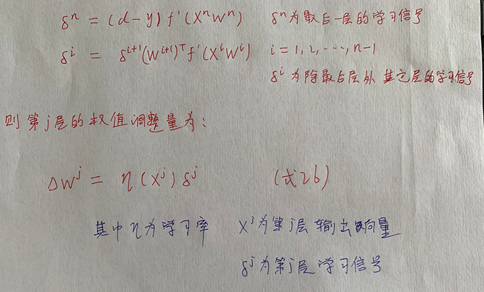 δⁿ = (d-y) f'(Xⁿwⁿ) δⁿ为最后一层的学习信号
δⁱ = δⁱ⁺¹(Wⁱ⁺¹)ᵀf'(XⁱWⁱ) i=1,2,…,n-1
δⁱ为除最后层外其它层的学习信号
则第j层的权值调整量为:
ΔWʲ = η(Xʲ)δʲ (式26)
其中η为学习率 Xʲ为第j层输出向量
δʲ为第j层学习信号